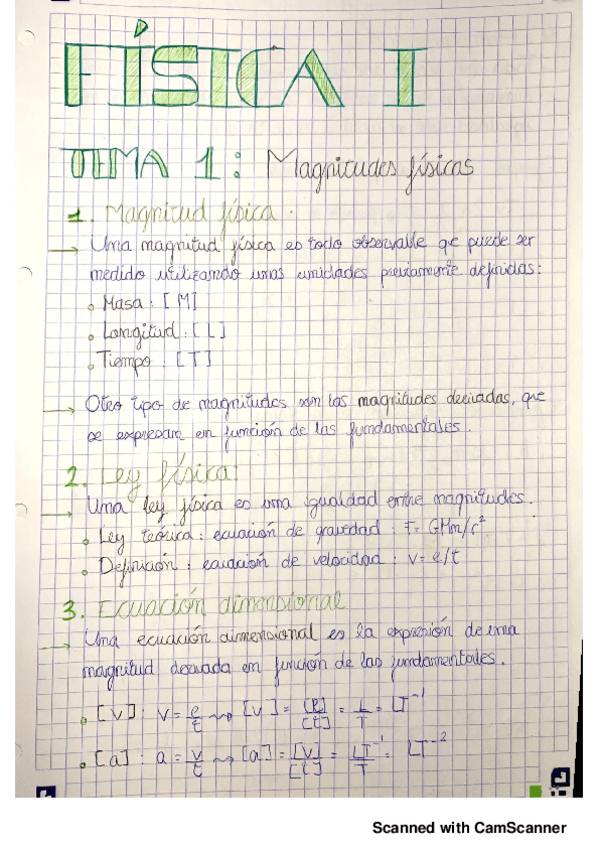 FÍSICA I
TEMA 1: Magnitudes físicas
1. Magnitud física.
→ Una magnitud física es todo observable que puede ser
medido utilizando unas unidades previamente definidas:
• Masa: [M]
• Longitud: [L]
• Tiempo: [T]
→ Otro tipo de magnitudes son las magnitudes derivadas, que
se expresan en función de las fundamentales.
2. Ley física:
→ Una ley física es una igualdad entre magnitudes.
• Ley teórica: ecuación de gravedad: F = GMm/r²
• Definición: ecuación de velocidad: v = e/t
3. Ecuación dimensional
→ Una ecuación dimensional es la expresión de una
magnitud derivada en función de las fundamentales.
• [v]: v = e/t ⇝ [v] = [e]/[t] = L/T = LT⁻¹
• [a]: a = v/t ⇝ [a] = [v]/[t] = LT⁻¹/T = LT⁻²
Scanned with CamScanner